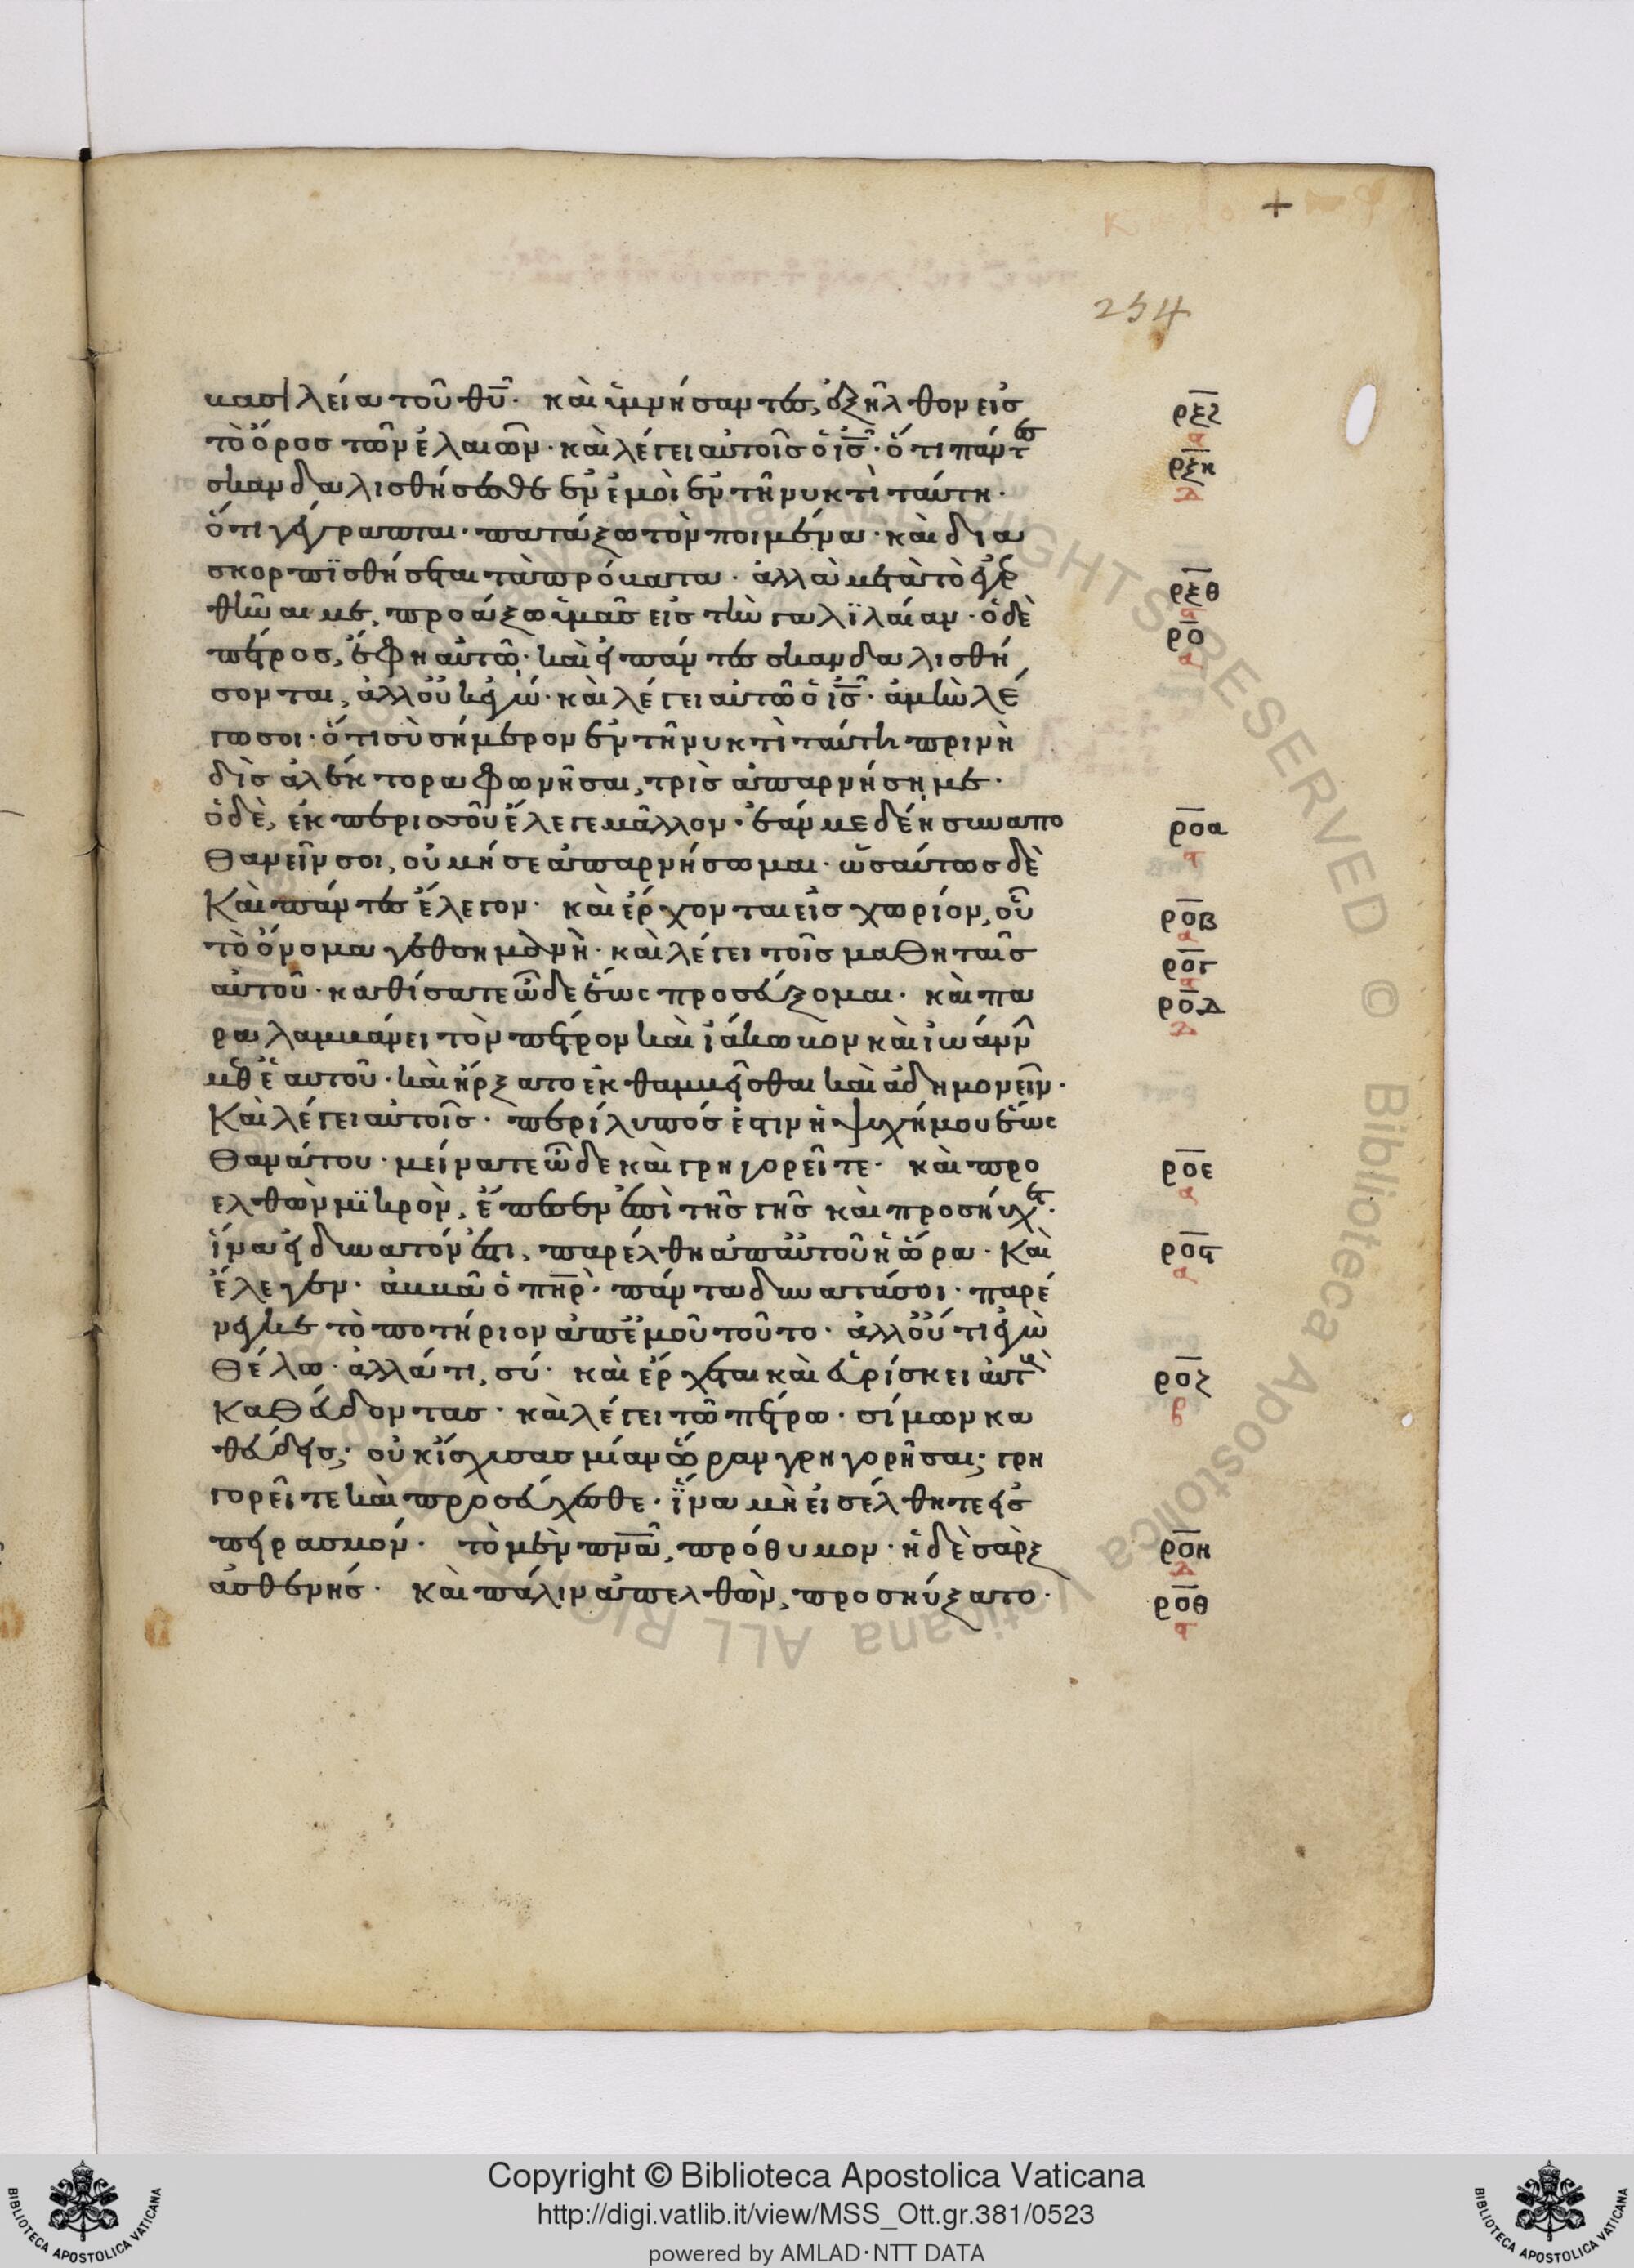 +
254
βασιλεία τοῦ θυ̅· καὶ ὑμνήσαντες, ἐξῆλθον εἰσ
τὸ ὄροσ τῶν ἐλαιῶν· καὶ λέγει αὐτοῖσ ὁ ἰσ̅· ὅτι πάντες
σκανδαλισθήσεσθε ἐν ἐμοὶ ἐν τῆ νυκτὶ ταύτη·
ὅτι γέγραπται· πατάξω τὸν ποιμένα· καὶ δια
σκορπϊσθήσεται τὰ πρόβατα· ἀλλὰ μετὰ τὸ ἐγερ
θῆναι με, προάξω ὑμᾶσ εἰσ τὴν γαλϊλαίαν· ὁ δὲ
πέτροσ, ἔφη αὐτῶ· καὶ εἰ πάντες σκανδαλισθή
σονται, ἀλλ οὐκ ἐγώ· καὶ λέγει αὐτῶ ὁ ἰσ̅· ἀμὴν λέ
γω σοι· ὅτι σὺ σήμερον ἐν τῆ νυκτὶ ταύτη πρινὴ
δὶσ ἀλέκτορα φωνῆσαι, τρὶσ ἀπαρνήση με·
ὁ δὲ, ἐκ περισσοῦ ἔλεγε μᾶλλον· ἐάν με δέη συναπο
θανεῖν σοι, οὐ μή σε ἀπαρνήσωμαι· ὡσαύτωσ δὲ
Καὶ πάντες ἔλεγον· καὶ ἔρχονται εἰσ χωρίον, οὗ
τὸ ὄνομα γεθσημανὴ· καὶ λέγει τοῖσ μαθηταῖσ
αὐτοῦ· καθίσατε ὧδε ἕως προσεύξομαι· καὶ πα
ραλαμβάνει τὸν πέτρον καὶ ἰάκωβον καὶ ἰωάννην
μεθ ἑαυτοῦ· καὶ ἤρξατο ἐκθαμβεῖσθαι καὶ ἀδημονεῖν·
Καὶ λέγει αὐτοῖσ· περίλυπόσ ἐστιν ἡ ψυχή μου ἕως
θανάτου· μείνατε ὧδε καὶ γρηγορεῖτε· καὶ προ
ελθὼν μϊκρὸν, ἔπεσεν ἐπὶ τῆσ γῆσ καὶ προσηύχετο·
ἵνα εἰ δυνατόν ἐστι, παρέλθη ἀπ αὐτοῦ ἡ ὥρα· Καὶ
ἔλεγεν· ἀββᾶ ὁ πη̅ρ· πάντα δυνατά σοι· παρέ
νεγκε τὸ ποτήριον ἀπ ἐμοῦ τοῦτο· ἀλλ οὔ τι ἐγὼ
θέλω· ἀλλά τι, σύ· καὶ ἔρχεται καὶ εὑρίσκει αὐτοὺς
Καθεύδοντασ· καὶ λέγει τῶ πέτρω· σίμων κα
θεύδεισ; οὐκ ἴσχυσασ μίαν ὥραν γρηγορῆσαι; γρη
γορεῖτε καὶ προσεύχεσθε· ἵνα μὴ εἰσέλθητε εἰσ
πειρασμόν· τὸ μὲν πνα̅, πρόθυμον· ἡ δὲ σὰρξ
ἀσθενήσ· καὶ πάλιν ἀπελθὼν, προσηύξατο·
ρξζ
α
ρξη
δ
ρξθ
α
ρο
α
ροα
α
ροβ
α
ρογ
α
ροδ
δ
ροε
α
ροϛ
α
ροζ
β
ροη
δ
ροθ
α
Copyright © Biblioteca Apostolica Vaticana
http://digi.vatlib.it/view/MSS_Ott.gr.381/0523
powered by AMLAD·NTT DATA
BIBLIOTECA APOSTOLICA VATICANA
BIBLIOTECA APOSTOLICA VATICANA